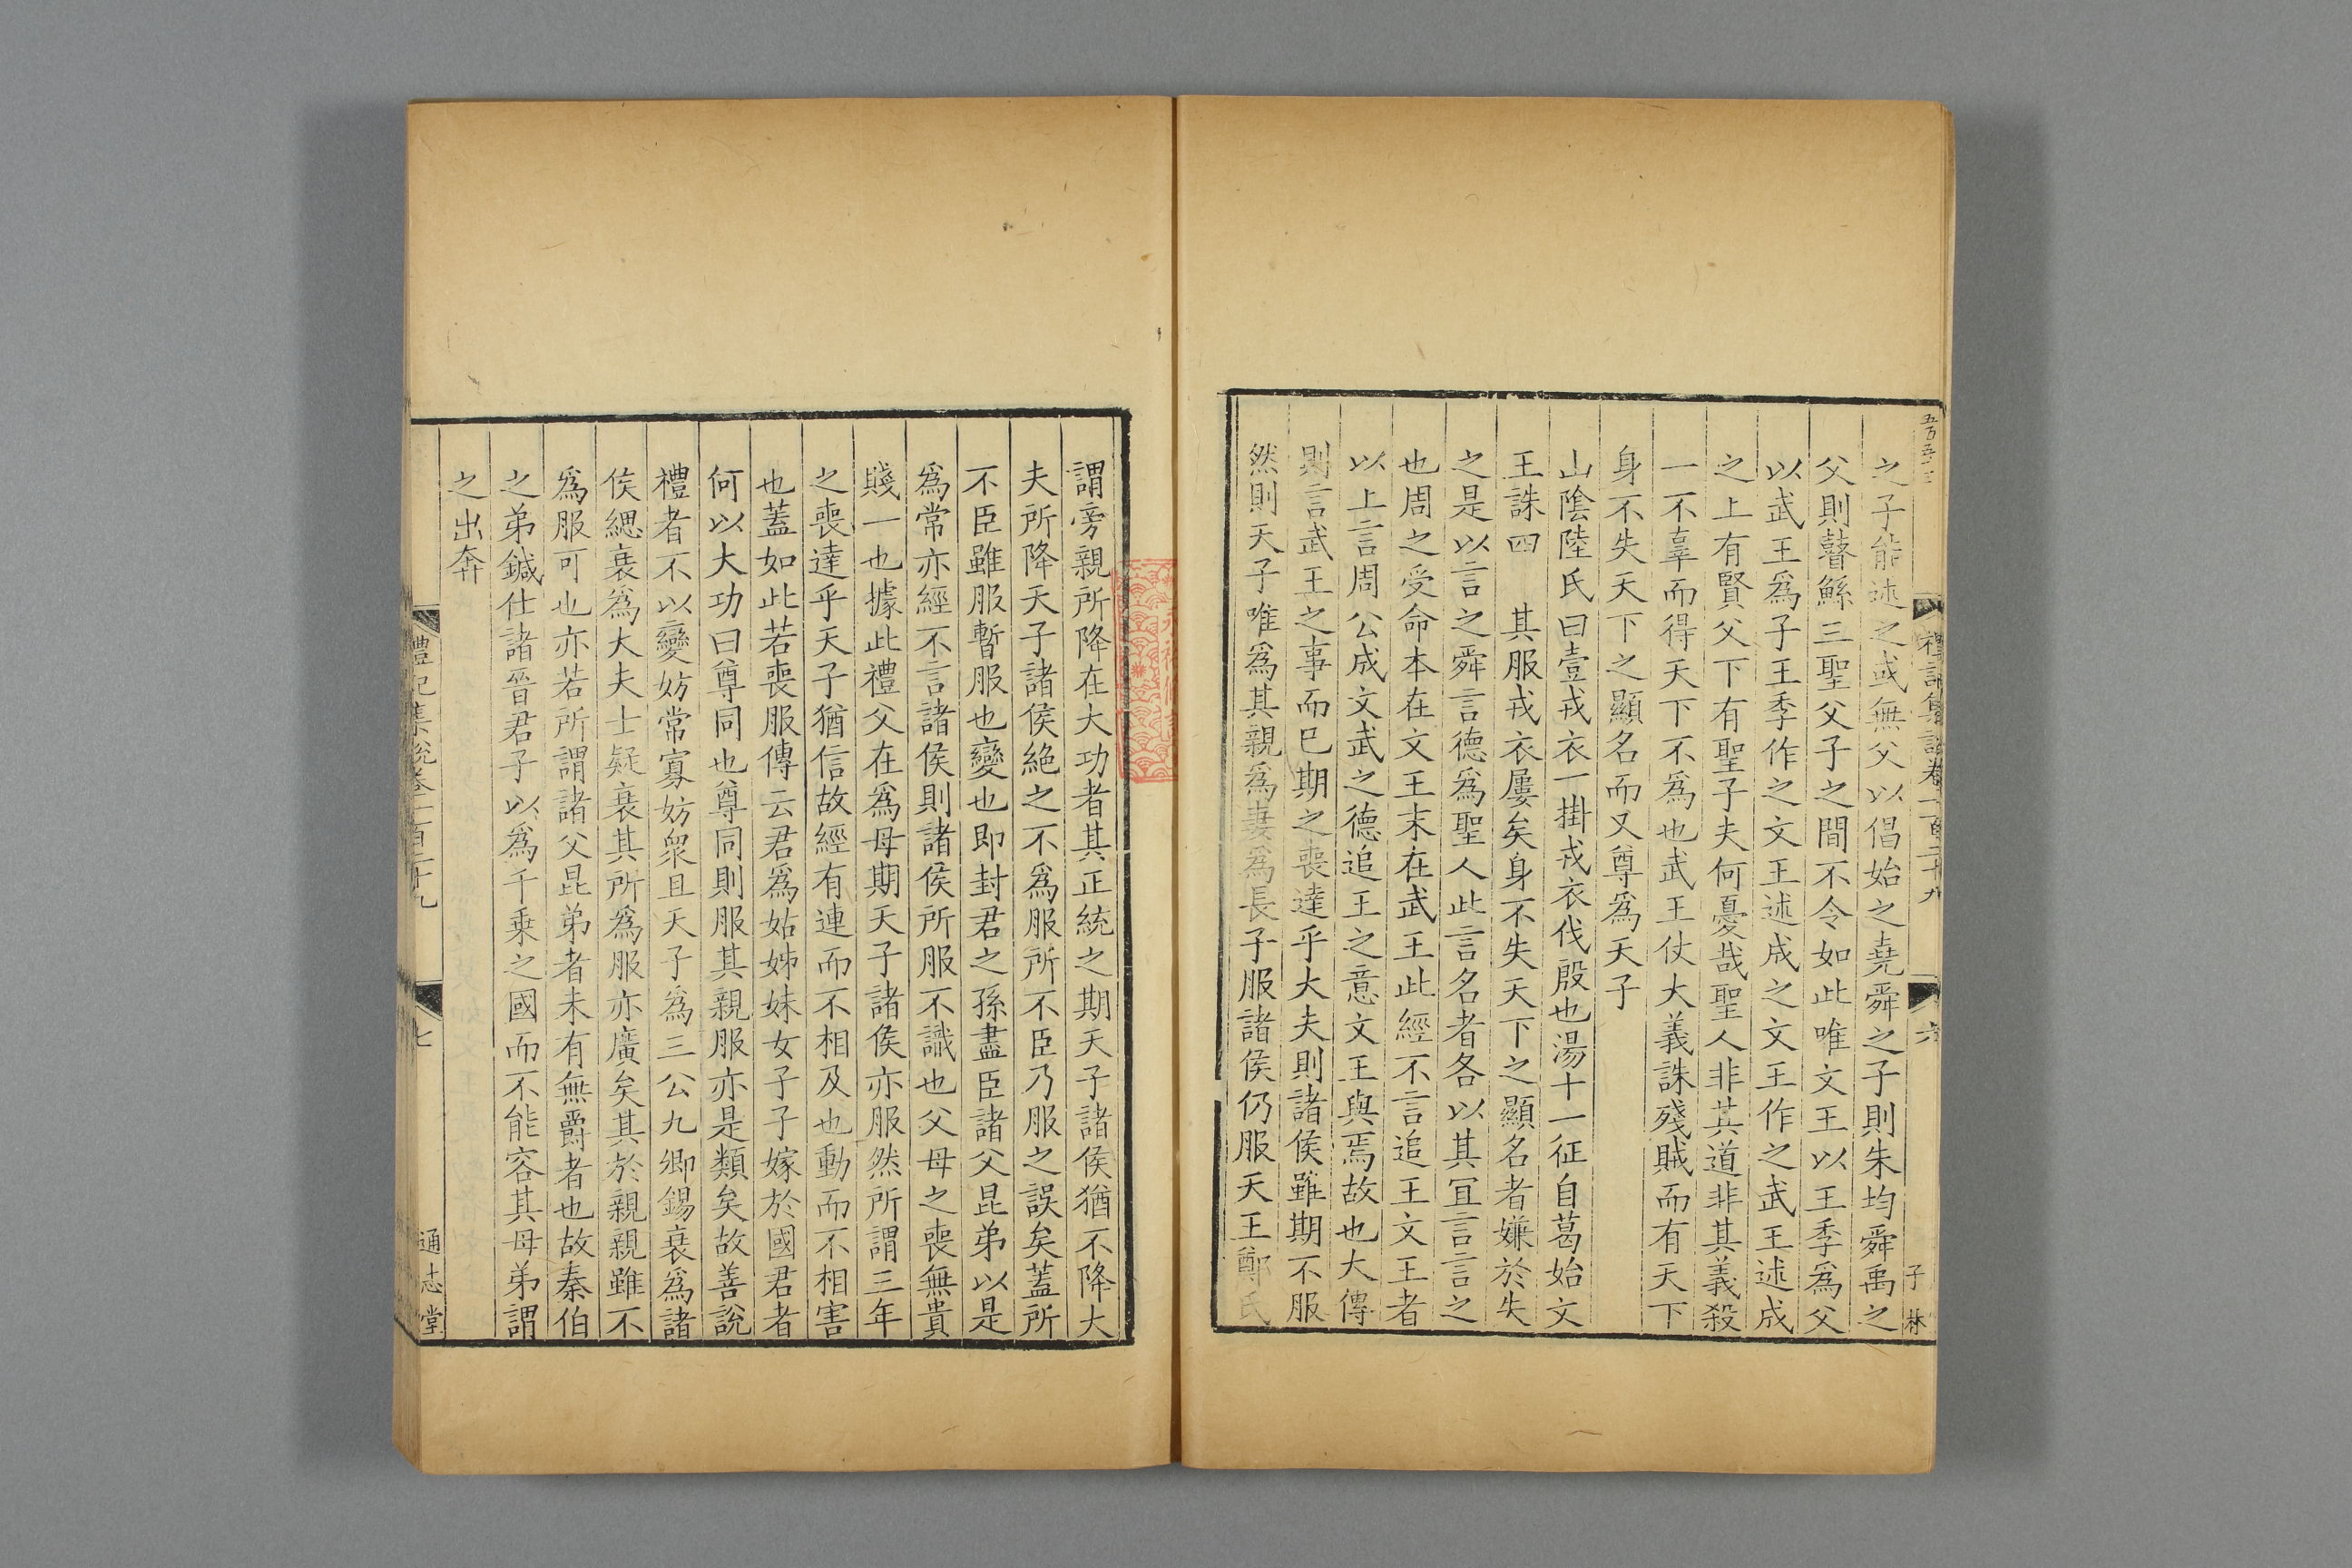 之子能述之或無父以倡始之堯舜之子則朱均舜禹之
父則瞽鯀三聖父子之間不令如此唯文王以王季爲父
以武王爲子王季作之文王述成之文王作之武王述成
之上有賢父下有聖子夫何憂哉聖人非其道非其義殺
一不辜而得天下不爲也武王仗大義誅殘賊而有天下
身不失天下之顯名而又尊爲天子
山陰陸氏曰壹戎衣一掛戎衣伐殷也湯十一征自葛始文
王誅四　其服戎衣屢矣身不失天下之顯名者嫌於失
之是以言之舜言德爲聖人此言名者各以其宜言言之
也周之受命本在文王末在武王此經不言追王文王者
以上言周公成文武之德追王之意文王與焉故也大傳
則言武王之事而已期之喪達乎大夫則諸侯雖期不服
然則天子唯爲其親爲妻爲長子服諸侯仍服天王鄭氏
禮記集說卷一百二十九
六
子林
謂旁親所降在大功者其正統之期天子諸侯猶不降大
夫所降天子諸侯絶之不爲服所不臣乃服之誤矣蓋所
不臣雖服暫服也變也即封君之孫盡臣諸父昆弟以是
爲常亦經不言諸侯則諸侯所服不識也父母之喪無貴
賤一也據此禮父在爲母期天子諸侯亦服然所謂三年
之喪達乎天子猶信故經有連而不相及也動而不相害
也蓋如此若喪服傳云君爲姑姊妹女子子嫁於國君者
何以大功曰尊同也尊同則服其親服亦是類矣故善說
禮者不以變妨常寡妨衆且天子爲三公九卿錫衰爲諸
侯緦衰爲大夫士疑衰其所爲服亦廣矣其於親親雖不
爲服可也亦若所謂諸父昆弟者未有無爵者也故秦伯
之弟鍼仕諸晉君子以爲千乘之國而不能容其母弟謂
之出奔
禮記集說卷一百二十九
七
通志堂